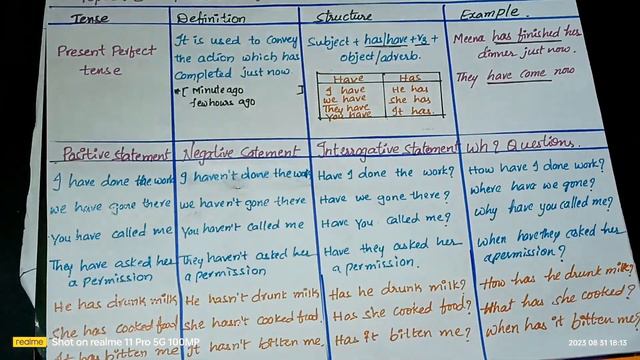 Tense Definition Structure Example.
Present Perfect
tense
It is used to convey
the action which has
completed just now.
*[ Minute ago ]
few hours ago
Subject + has/have + v3 +
object/adverb.
Have Has
I have He has
we have she has
They have It has.
You have
Meena has finished her
dinner just now.
They have come now
Positive statement Negative Satement Interrogative Statement Wh? Questions.
I have done the work I haven't done the work Have I done the work? How have I done work?
we have gone there we haven't gone there Have we gone there? where have we gone?
You have called me You haven't called me Have you called me? why have you called me?
They have asked her They haven't asked her Have they asked her When have they asked her
a permission a permission a permission. a permission?
He has drunk milk He hasn't drunk milk Has he drunk milk? How has he drunk milk?
She has cooked food she hasn't cooked food. Has she cooked food? What has she cooked?
It has bitten me It hasn't bitten me. Has it bitten me? when has it bitten me?
realme Shot on realme 11 Pro 5G 100MP
2023 08 31 18:13